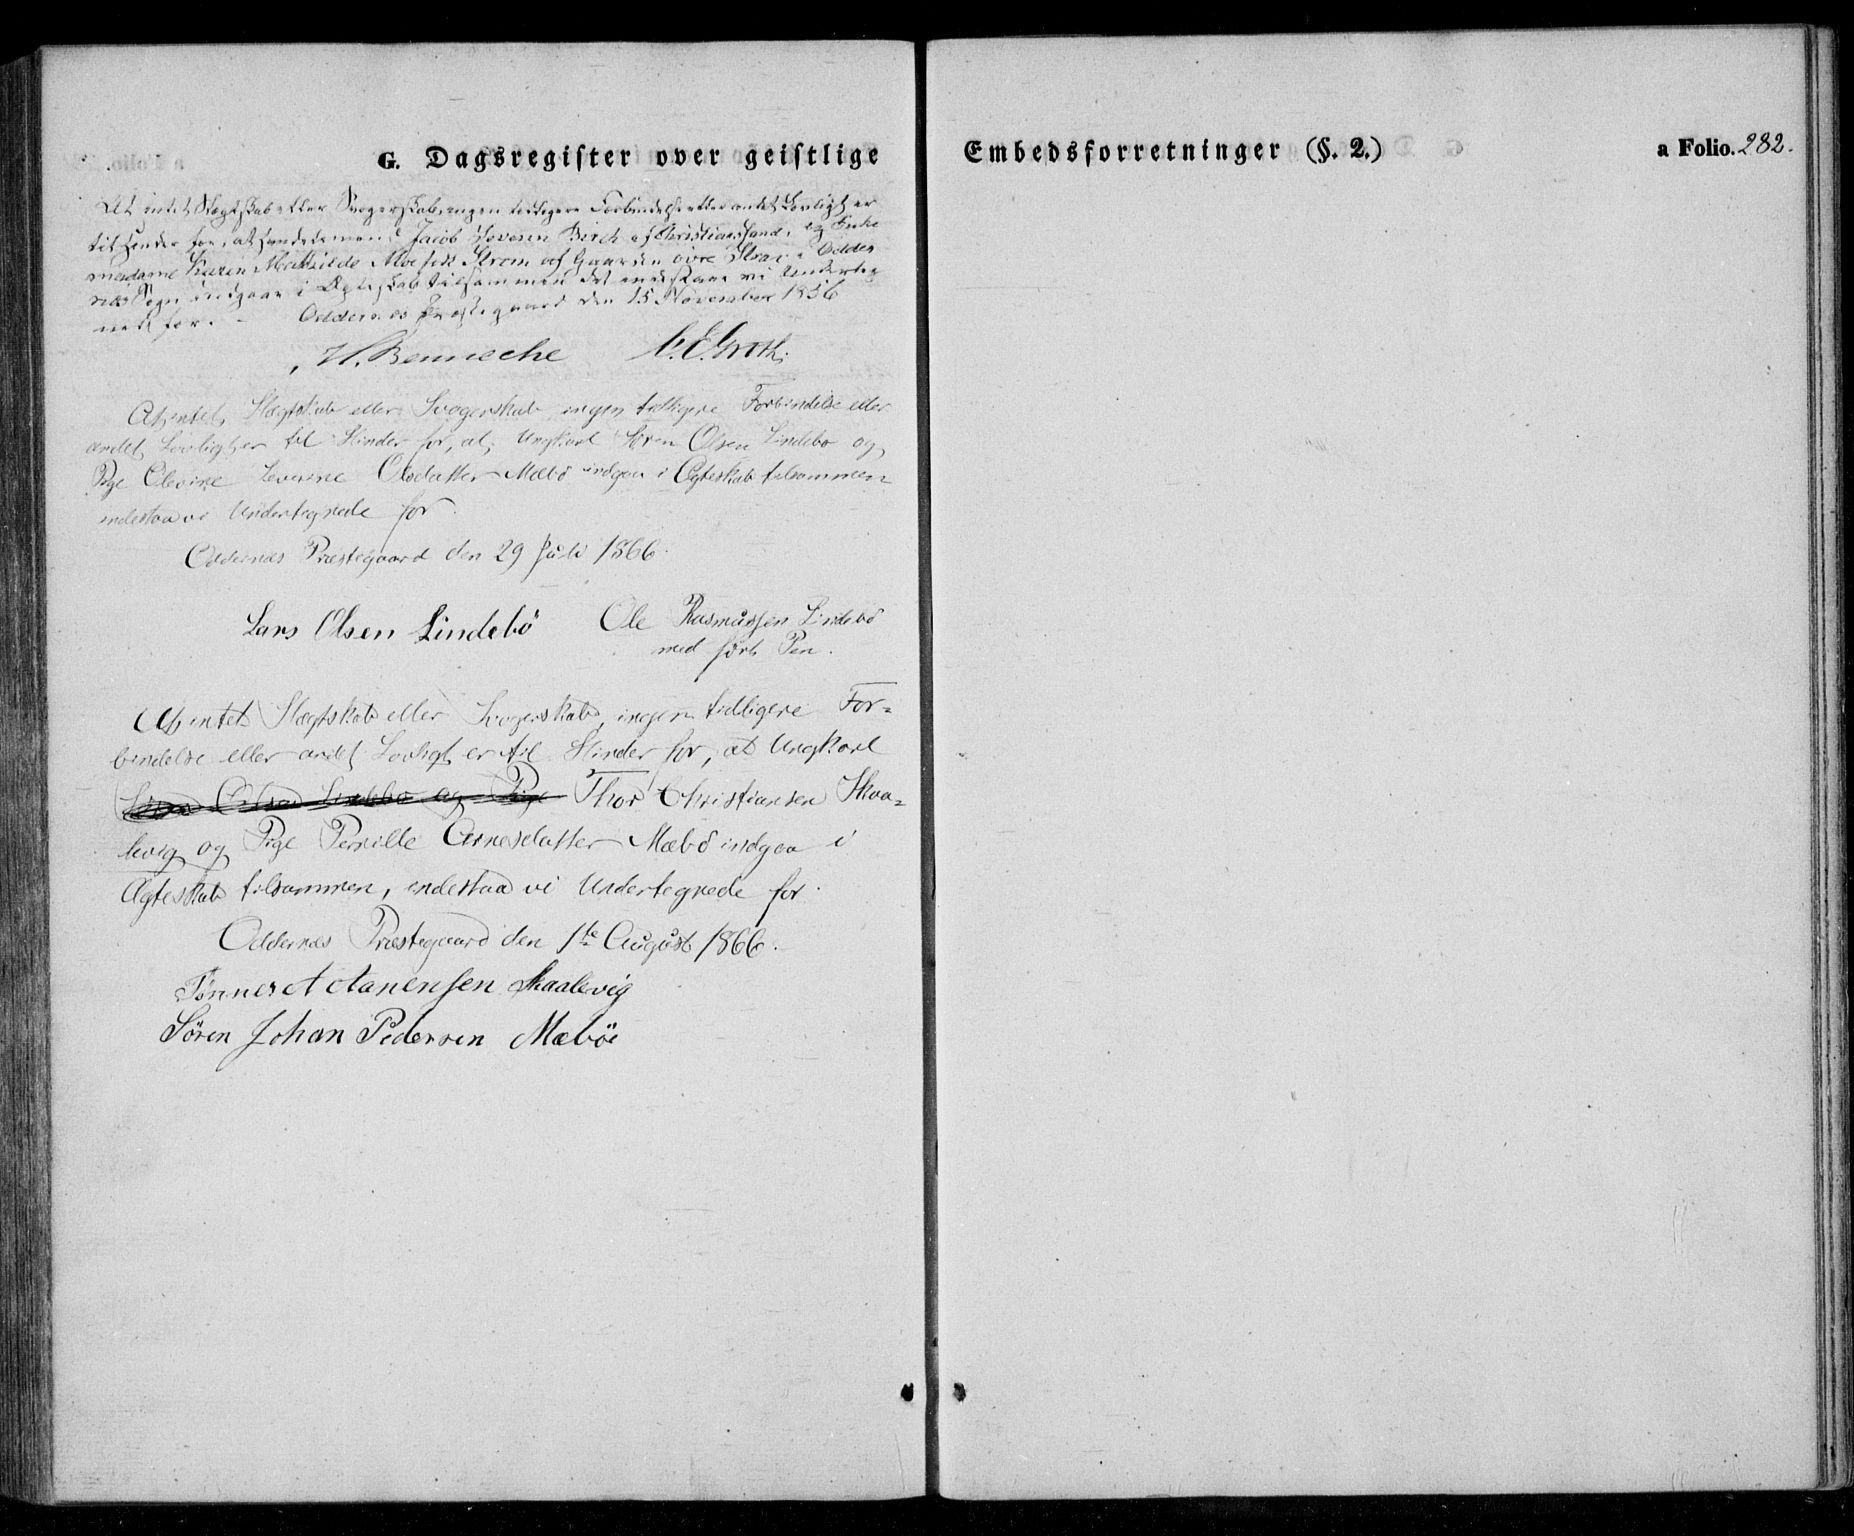 G. Dagsregister over geistlige
Embedsforretninger (§. 2.)
a Folio. 282.
At intet Slægtskab eller Svogerskab, ingen tidligere Forbindelse eller andet Lovligt er
til Hinder for, at Jacob Severin Birch af Christianssand, og Enke
madame Karen Mathilde Moe født Strøm af Gaarden øvre Strai i Odder
næs Sogn indgaae i Ægteskab tilsammen det indestaae vi Underteg
nede for. - Oddernes Præstegaard den 15 November 1856
H. Benneche C. E. Groth.
At intet Slægtskab eller Svogerskab, ingen tidligere Forbindelse eller
andet Lovligt er til Hinder for, at, Ungkarl Søren Olsen Lindebo og
Pige Olevine Severine Olsdatter Mæbö indgaa i Ægteskab tilsammen
indestaa vi Undertegnede for.
Oddernæs Præstegaard den 29 Juli 1866.
Lars Olsen Lindebö Ole Rasmussen Lindebö
med ført Pen.
At intet Slægtskab eller Svogerskab, ingen tidligere For=
bindelse eller andet Lovligt er til Hinder for, at Ungkarl
Søren Olsen Lindebo og Pige Thor Christiansen Skaa=
levig og Pige Pernille Arnesdatter Mæbö indgaa i
Ægteskab tilsammen, indestaa vi Undertegnede for.
Oddernæs Præstegaard den 1te August 1866.
Tönnes Skaalevig
Sören Johan Pedersen Mæböe